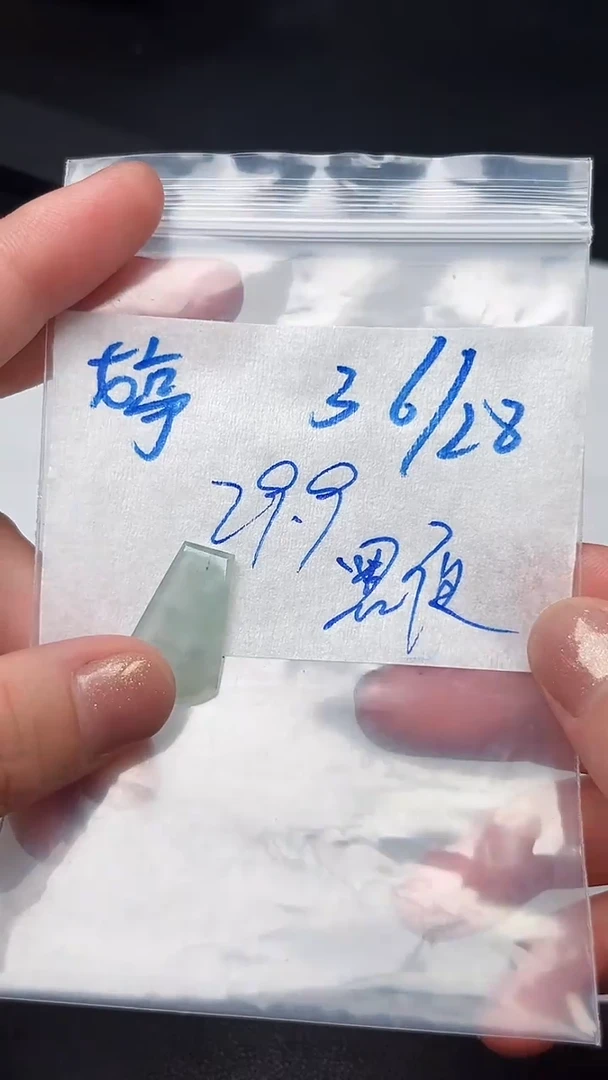 婷 3 6/28
29.9
黑夜